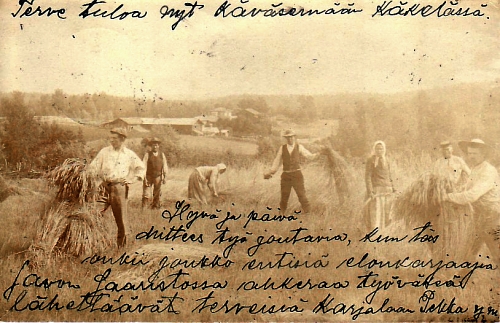 Terve tuloa nyt Käväsemään Käkelässä.
Hyvä ja päivä
työ joutavia, kun taas
joukko entisiä elonkorjaajia
Savon Saaristossa ahkeraa työväkeä
lähettäävät terveisiä Karjalaan Pekka